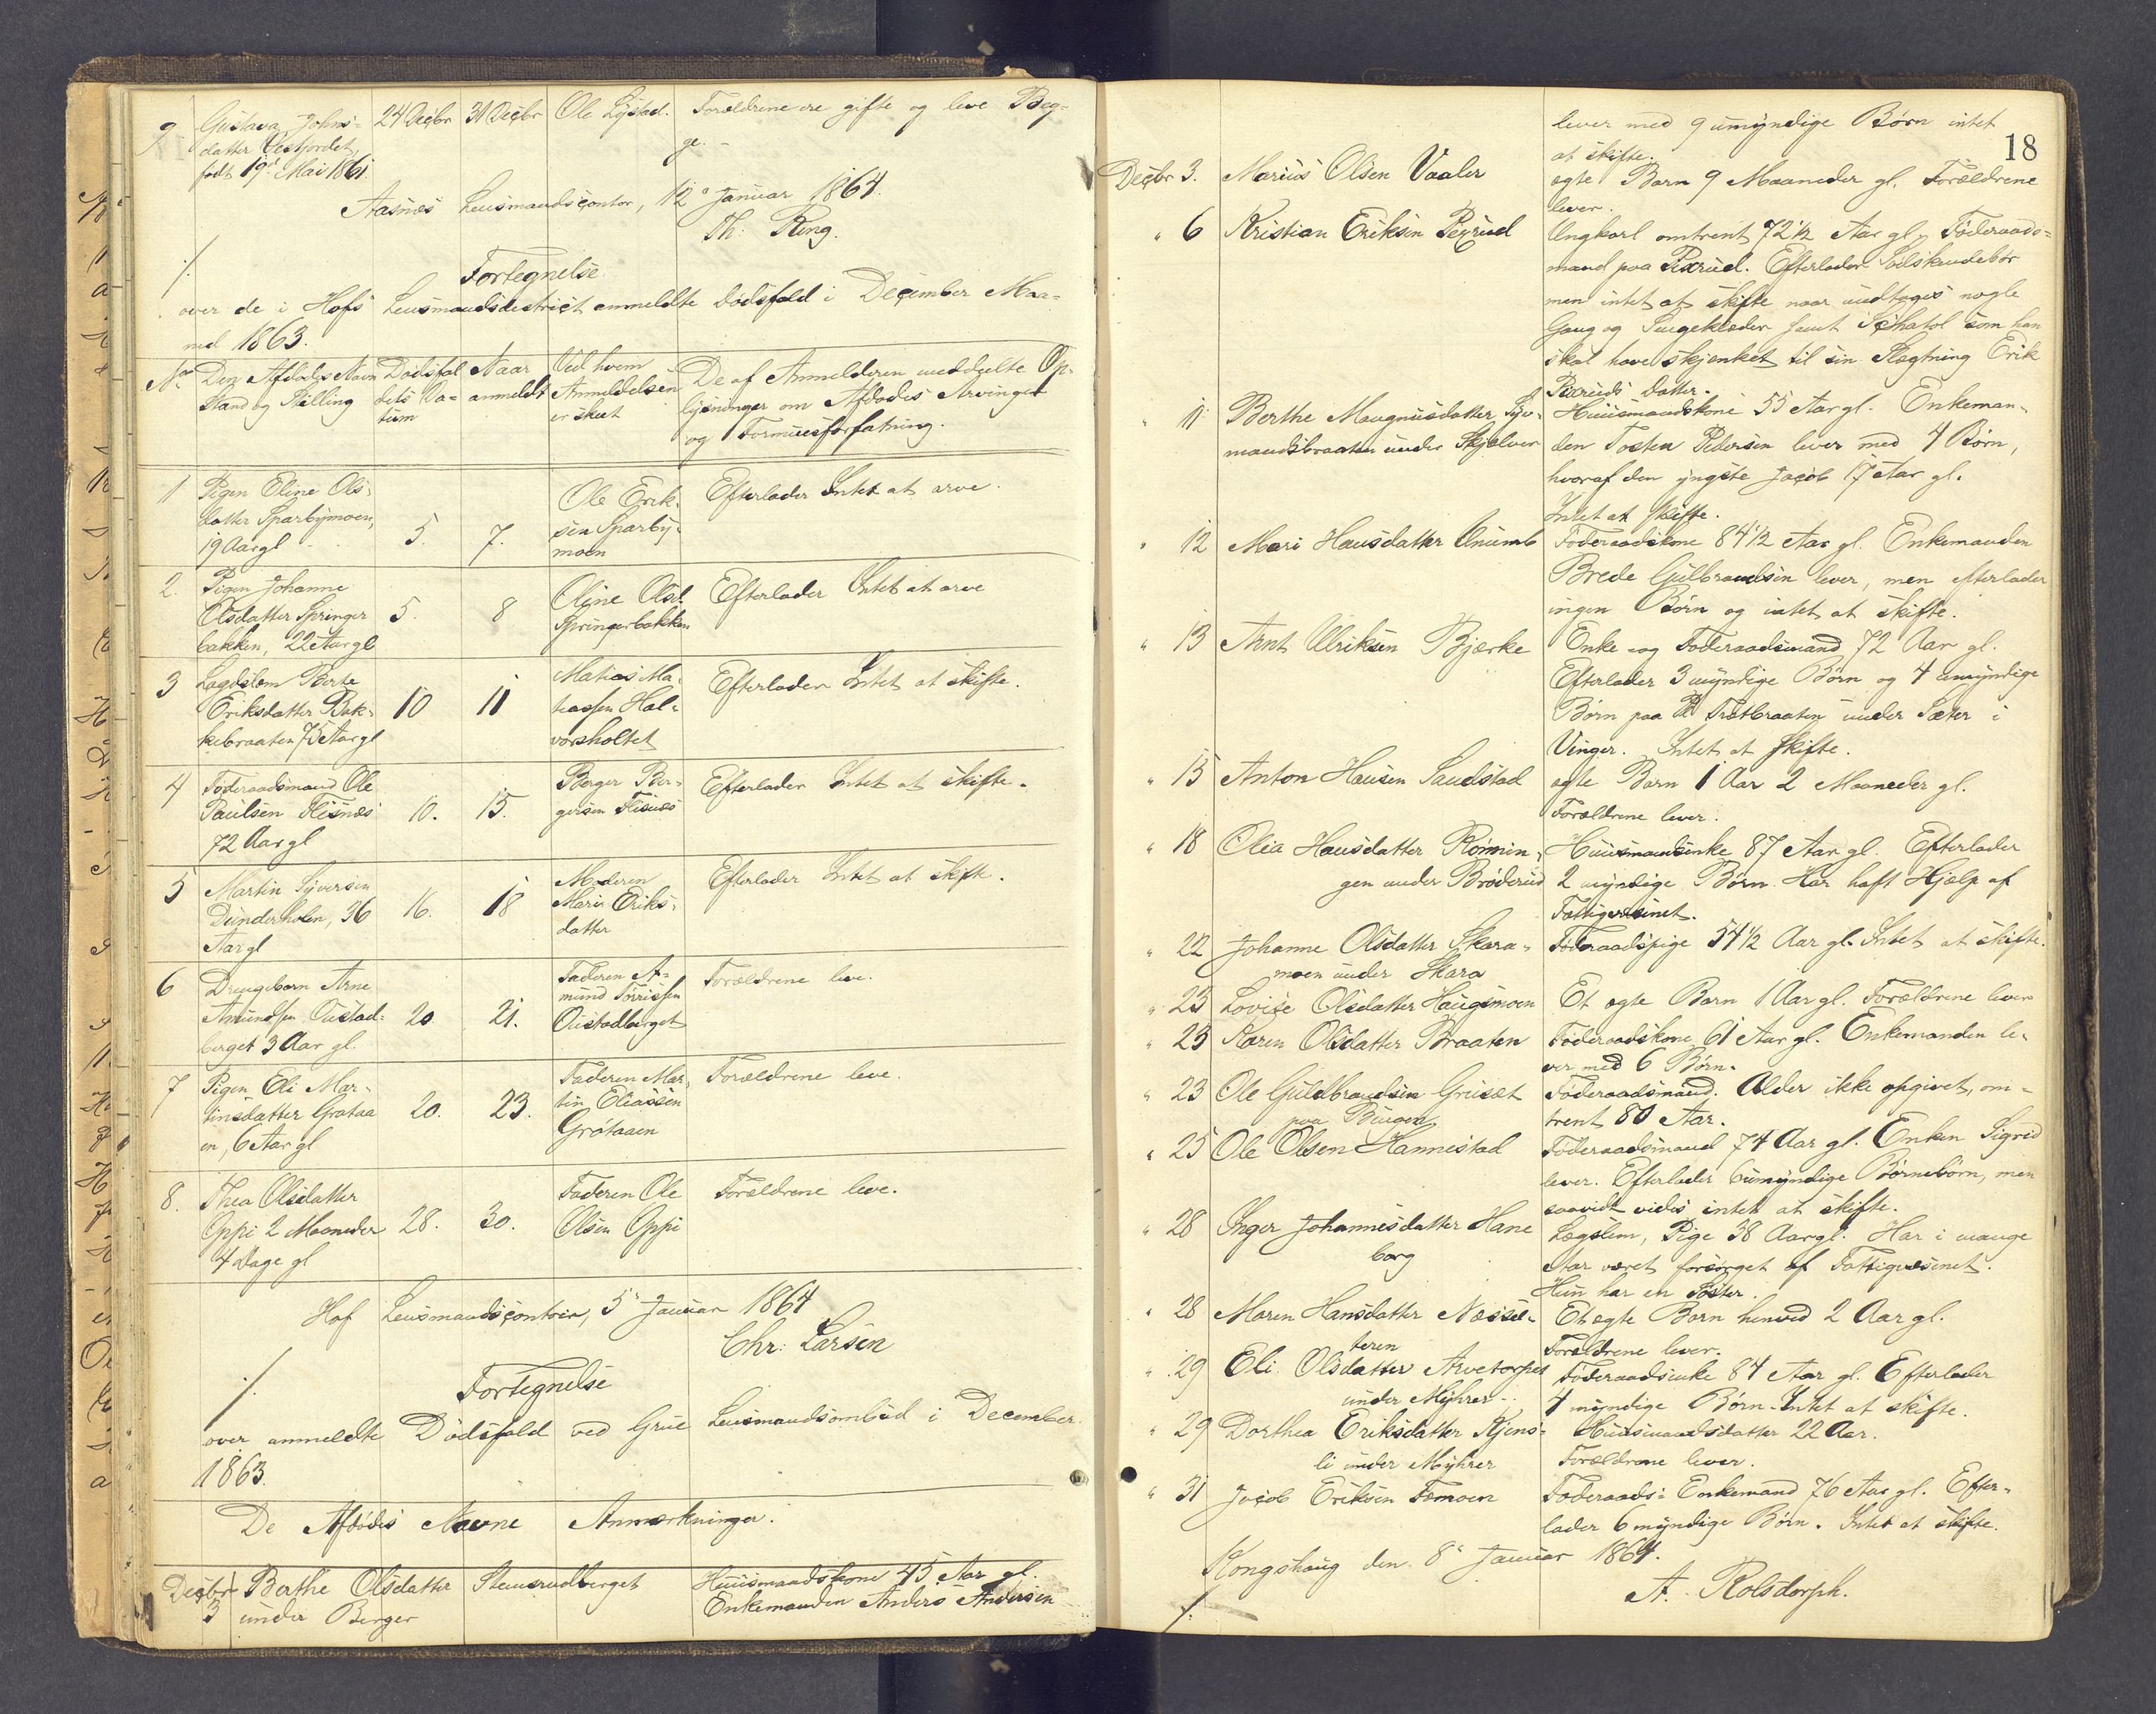 9 Gustava Johns- 24 Decbr 31 Decbr Ole Lystad. Forældrene ere gifte og leve Beg-
datter Vestjordet, ge. -
født 19de Mai 1861.
Aasnæs Lensmandscontor, 12te Januar 1864.
Th: Ring.
Fortegnelse
over de i Hofs Lensmandsdestrict anmeldte Dødsfald i December Maa-
ned 1863.
No Den Afdødes Navn Dødsfal Naar Ved hvem De af Anmelderen meddeelte Op-
Stand og Stilling dets Da- anmeldt Anmeldelsen lysninger om Afdødes Arvinger
tum er skeet og Formuesforfatning.
1 Pigen Eline Ols- Ole Erik- Efterlader Intet at arve.
datter Sparbymoen, 5. 7. sen Sparby-
19 Aar gl moen
2. Pigen Johanne Oline Olsd. Efterlader Intet at arve
Olsdatter Springer 5. 8 Springerbakken
bakken, 22 Aar gl
3 Lægdslem Berte Matias Ma- Efterlader Intet at skifte.
Eriksdatter Bak- 10 11 teassen Hal-
kebraaten 73 Aar gl vorsholtet
4 Føderaadsmand Ole Berger Ber- Efterlader Intet at skifte.
Paulsen Flisnæs 10. 15. gersen Flisnæs
72 Aar gl
5 Martin Syversen Moderen Efterlader Intet at skifte.
Dunderholen, 36 16. 18 Marie Eriks-
Aar gl datter
6 Drengebarn Arne Faderen A- Forældrene leve.
Amundsen Oustad- 20 21. mund Torrissen
berget 3 Aar gl. Oustadberget
7 Pigen Eli Mar- Faderen Mar- Forældrene leve.
tinsdatter Grøtaa 20. 23. tin Eliassen
en, 6 Aar gl Grøtaaen
8. Thea Olsdatter Faderen Ole Forældrene leve.
Oppi 2 Maaneder 28. 30. Olsen Oppi
4 Dage gl
Hof Lensmandscontoir, 5te Januar 1864
Chr: Larsen
Fortegnelse
over anmeldte Dødsfald ved Grue Lensmandsombud i December
1863.
De Afdødes Navne Anmærkninger.
Decbr Berthe Olsdatter Stemsrudberget Huusmandskone 45 Aar gl.
3 under Berger Enkemanden Anders Andersen
18
lever med 9 umyndige Børn intet
at skifte.
Decbr 3. Marius Olsen Vaaler ægte Barn 9 Maaneder gl. Forældrene
lever.
" 6 Kristian Eriksen Pexrud Ungkarl omtrent 72 1/2 Aar gl. Føderaads-
mand paa Pexrud. Efterlader Sødskendebør
men intet at skifte naar undtages nogle
Gang og Sengeklæder samt Schatol som han
skal have skjenket til sin Slægtning Erik
Pexruds datter.
" 11 Berthe Mougnusdatter Syv- Huusmandskone 55 Aar gl. Enkeman-
mandsbraaten under Skjølver den Tosten Pedersen lever med 4 Børn,
hvoraf den yngste Jacob 17 Aar gl.
Intet at skifte.
" 12 Mari Hansdatter Onumb Føderaadskone 84 1/2 Aar gl. Enkemanden
Brede Gulbrandsen lever, men efterlader
ingen Børn og intet at skifte.
" 13 Arnt Ulriksen Bjerke Enke- og Føderaadsmand 72 Aar gl.
Efterlader 3 myndige Børn og 4 umyndige
Børn paa Pl Tratbraaten under Sæter i
Vinger. Intet at skifte.
" 15 Anton Hansen Sandstad ægte Barn 1 Aar 2 Maaneder gl.
Forældrene lever.
" 18 Olea Hansdatter Rønnin- Huusmandsenke 87 Aar gl. Efterlader
gen under Brøderud 2 myndige Børn. Har haft Hjælp af
Fattigvæsenet.
" 22 Johanne Olsdatter Skara- Føderaadspige 54 1/2 Aar gl. Intet at skifte.
moen under Skara
" 23 Lovise Olsdatter Haugsmoen Et ægte Barn 1 Aar gl. Forældrene lever
" 23 Karen Olsdatter Braaten Føderaadskone 61 Aar gl. Enkemanden le-
ver med 6 Børn.
" 23 Ole Guldbrandsen Grusæt Føderaadsmand. Alder ikke opgivet, om-
paa Bingen trent 80 Aar.
" 25 Ole Olsen Hannestad Føderaadsmand 74 Aar gl. Enken Sigrid
lever. Efterlader 6 umyndige Børnebørn, men
saavidt vides intet at skifte.
" 28 Inger Johannesdatter Hane Lægslem, Pige 38 Aar gl. Har i mange
borg Aar været forsørget af Fattigvæsenet.
Hun har en Søster.
" 28 Maren Hansdatter Næssæ- Et ægte Barn henved 2 Aar gl.
teren Forældrene lever.
" 29 Eli Olsdatter Arvetorpet Føderaadsenke 84 Aar gl. Efterlader
under Myhrer 4 myndige Børn. Intet at skifte.
" 29 Dorthea Eriksdatter Kjens- Huusmandsdatter 22 Aar.
li under Myhrer Forældrene lever.
" 31 Jacob Eriksen Tæmoen Føderaads- Enkemand 76 Aar gl. Efter-
lader 6 myndige Børn. Intet at skifte.
Kongshaug den 8de Januar 1864.
A. Rolsdorph.